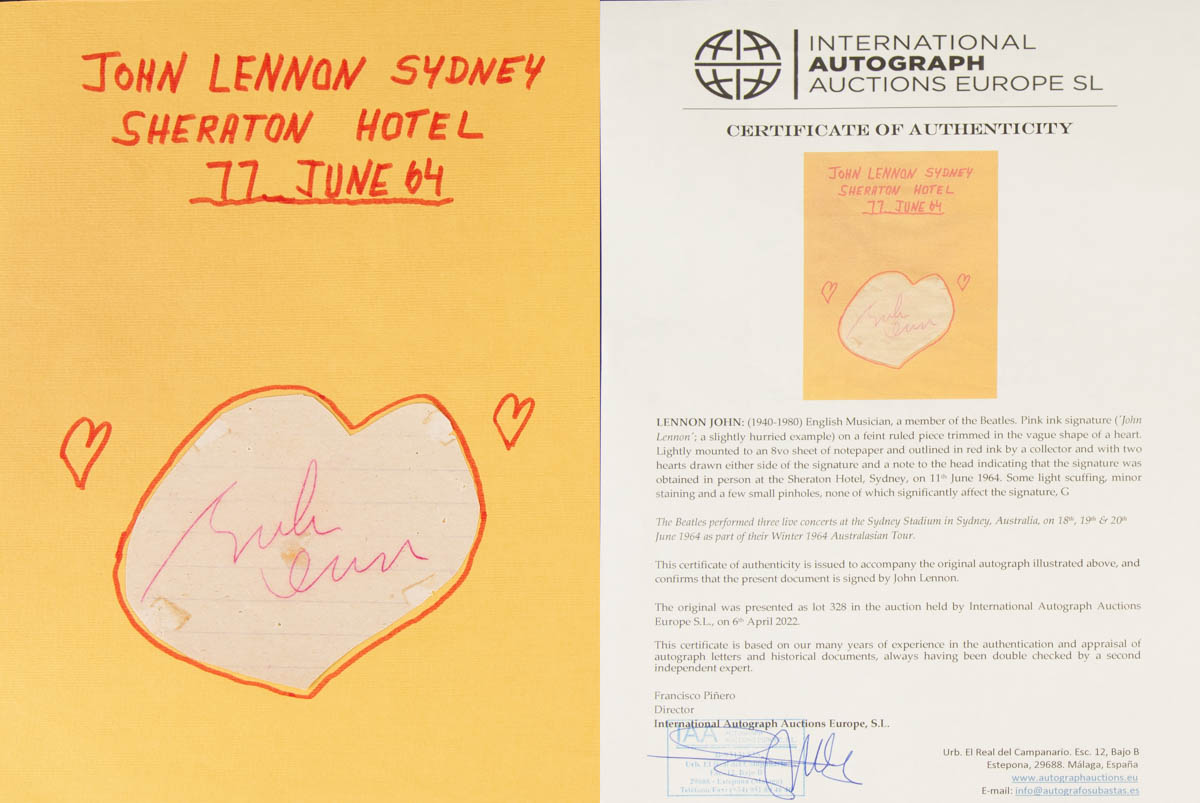 JOHN LENNON SYDNEY
SHERATON HOTEL
11 JUNE 64
John
Lennon
INTERNATIONAL
AUTOGRAPH
AUCTIONS EUROPE SL
CERTIFICATE OF AUTHENTICITY
JOHN LENNON SYDNEY
SHERATON HOTEL
11 JUNE 64
John
Lennon
LENNON JOHN: (1940-1980) English Musician, a member of the Beatles. Pink ink signature (´John
Lennon´; a slightly hurried example) on a feint ruled piece trimmed in the vague shape of a heart.
Lightly mounted to an 8vo sheet of notepaper and outlined in red ink by a collector and with two
hearts drawn either side of the signature and a note to the head indicating that the signature was
obtained in person at the Sheraton Hotel, Sydney, on 11th June 1964. Some light scuffing, minor
staining and a few small pinholes, none of which significantly affect the signature, G
The Beatles performed three live concerts at the Sydney Stadium in Sydney, Australia, on 18th, 19th & 20th
June 1964 as part of their Winter 1964 Australasian Tour.
This certificate of authenticity is issued to accompany the original autograph illustrated above, and
confirms that the present document is signed by John Lennon.
The original was presented as lot 328 in the auction held by International Autograph Auctions
Europe S.L., on 6th April 2022.
This certificate is based on our many years of experience in the authentication and appraisal of
autograph letters and historical documents, always having been double checked by a second
independent expert.
Francisco Piñero
Director
International Autograph Auctions Europe, S.L.
IAA
Urb. El Real del Campanario. Esc. 12, Bajo B
Estepona, 29688. Málaga, España
www.autographauctions.eu
E-mail: info@autografosubastas.es